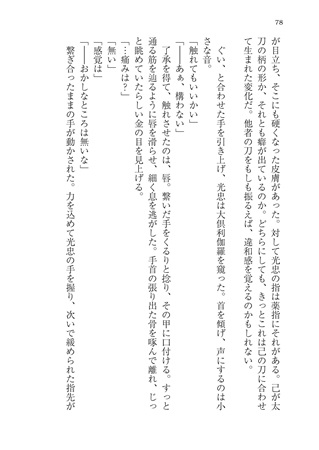 78
が目立ち、そこにも硬くなった皮膚があった。対して光忠の指は薬指にそれがある。己が太
刀の柄の形か、それとも癖が出ているのか。どちらにしても、きっとこれは己の刀に合わせ
て生まれた変化だ。他者の刀をもしも振るえば、違和感を覚えるのかもしれない。
ぐい、と合わせた手を引き上げ、光忠は大倶利伽羅を窺った。首を傾げ、声にするのは小
さな音。
「触れてもいいかい」
「――あぁ、構わない」
了承を得て、触れさせたのは、唇。繋いだ手をくるりと捻り、その甲に口付ける。すっと
通る筋を辿るように唇を滑らせ、細く息を逃がした。手首の張り出た骨を啄んで離れ、じっ
と眺めていたらしい金の目を見上げる。
「…痛みは？」
「無い」
「感覚は」
「――おかしなところは無いな」
繋ぎ合ったままの手が動かされた。力を込めて光忠の手を握り、次いで緩められた指先が